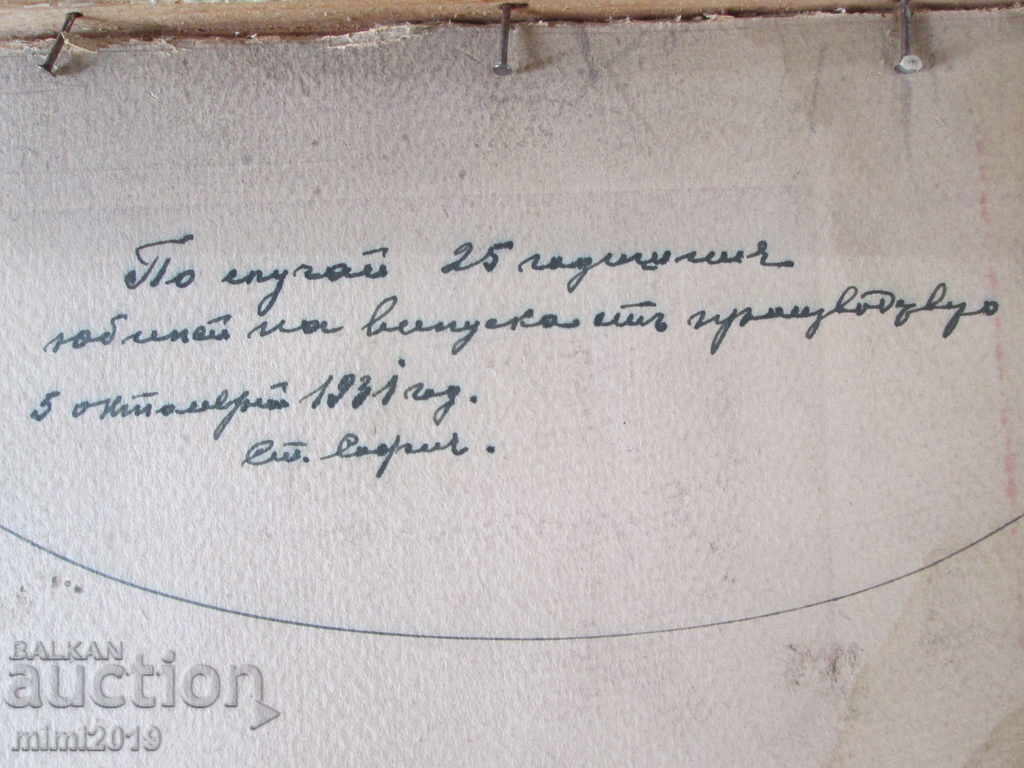 По случай 25 годишния
юбилей на випуска отъ производство
5 октомврий 1931 год.
Ст. София.
BALKAN
auction
mimi2019